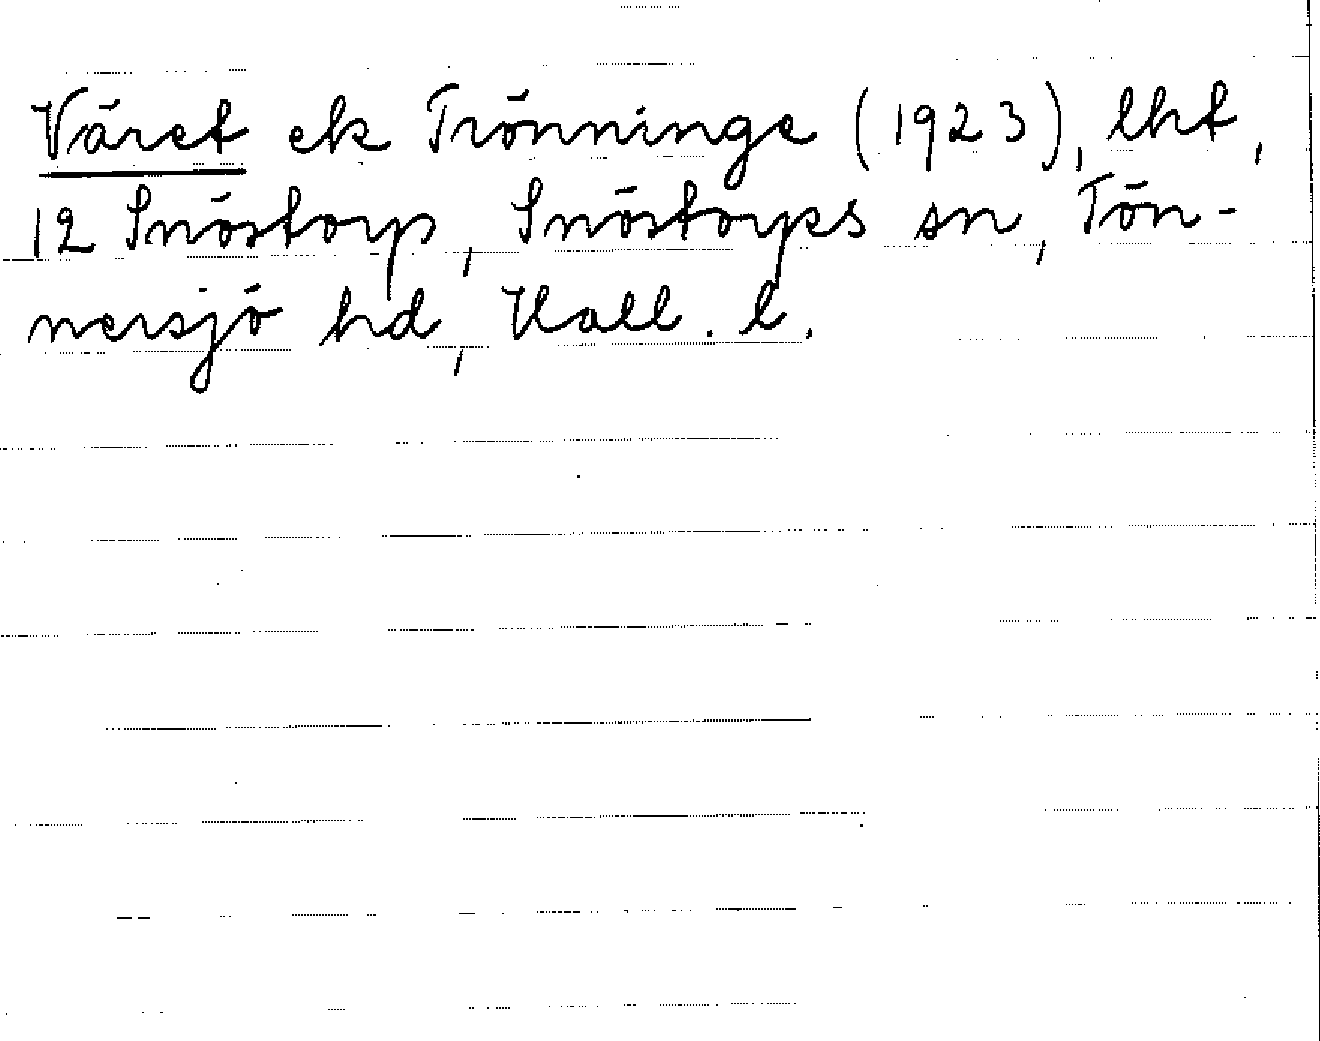 Väret ek Trönninge (1923), lht,
12 Snöstorp, Snöstorps sn, Tön-
nersjö hd, Hall. l.